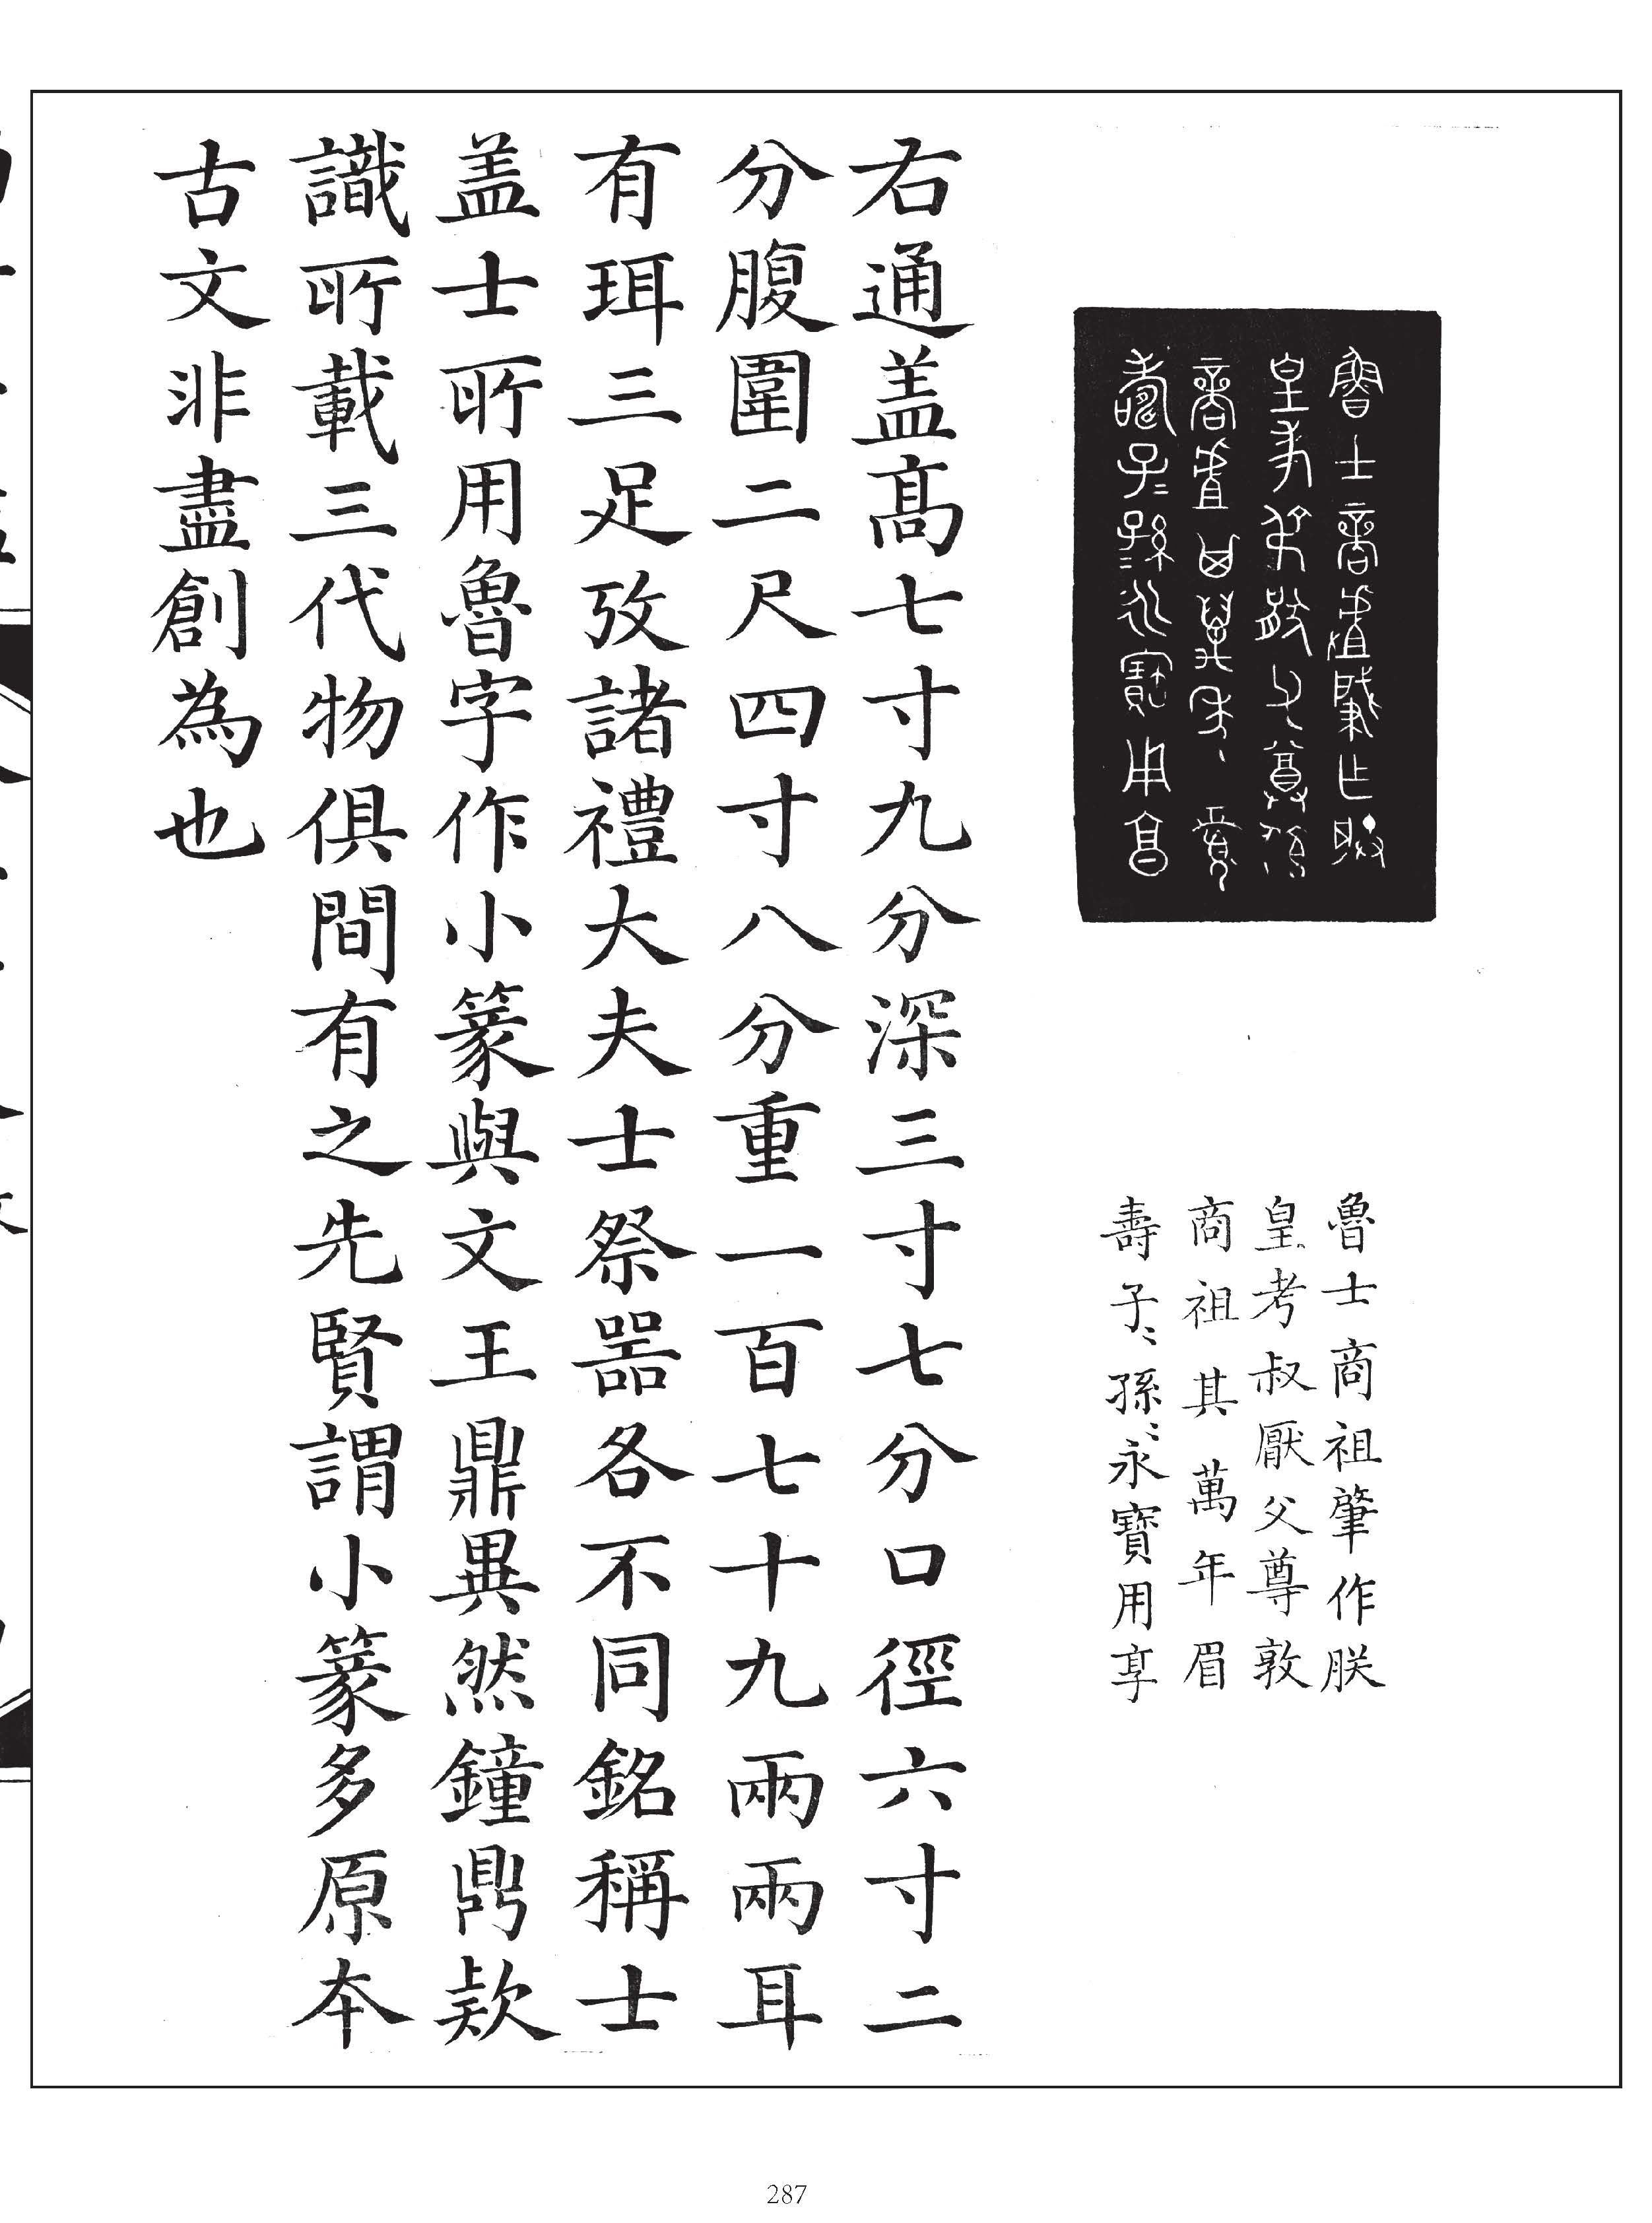 魯士商祖肇作朕
皇考叔厭父尊敦
商祖其萬年眉
壽子〻孫〻永寶用享
右通盖高七寸九分深三寸七分口徑六寸二
分腹圍二尺四寸八分重一百七十九兩兩耳
有珥三足攷諸禮大夫士祭器各不同銘稱士
盖士所用魯字作小篆與文王鼎異然鐘鼎款
識所載三代物俱間有之先賢謂小篆多原本
古文非盡創為也
287